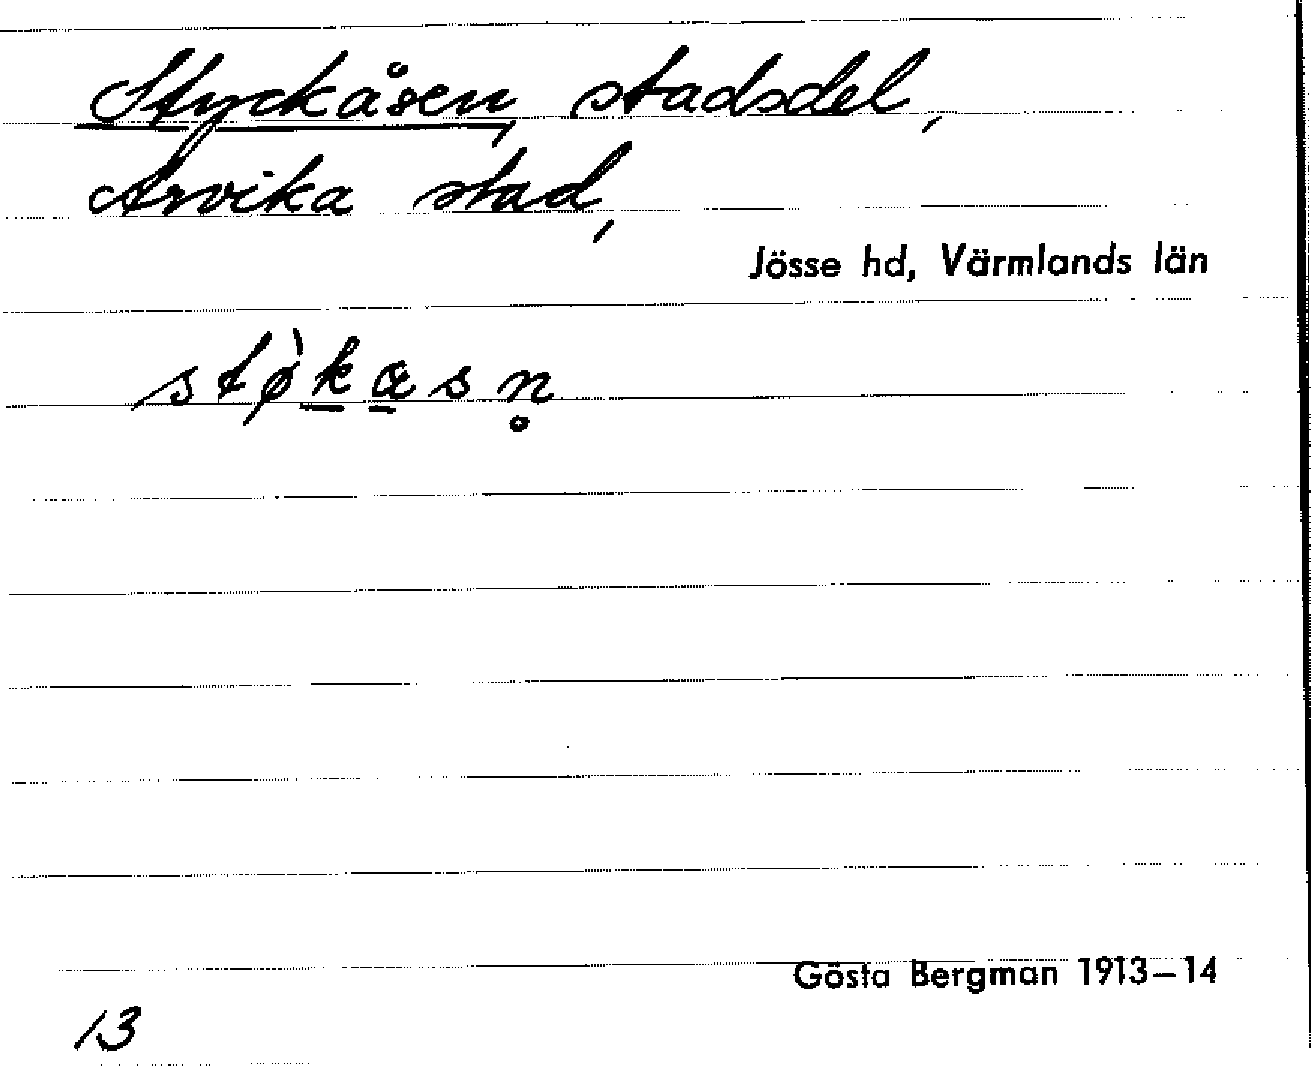 Styckåsen, stadsdel,
Arvika stad,
Jösse hd, Värmlands län
stø̀k̲a̲sn̥
Gösta Bergman 1913–14
13